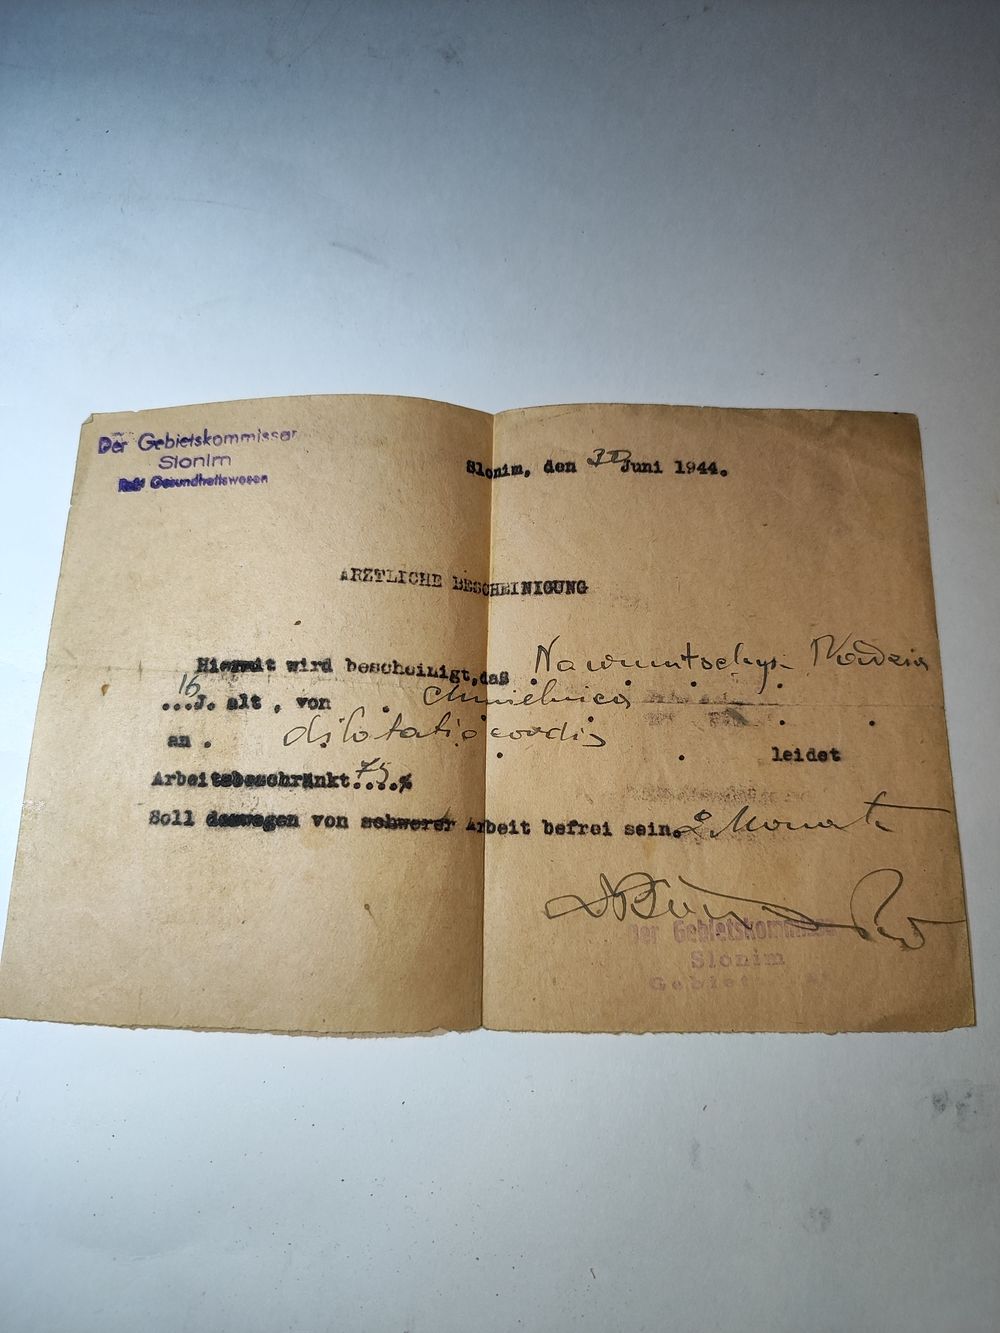 Der Gebietskommissar
Slonim
Ref. Gesundheitswesen
Slonim, den Juni 1944.
ARZTLICHE BESCHEINIGUNG
Hiermit wird bescheinigt, das
16
...J. alt , von . Chmielnica
an . dilotatio cordis
leidet
Arbeitsbeschränkt.75...%
Soll deswegen von schwerer Arbeit befrei sein. 2 Monate
Der Gebietskommissar
Slonim